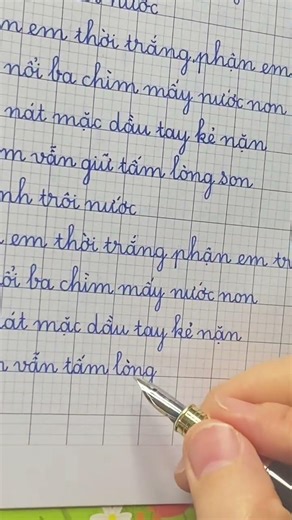 nước
em thời trắng, phận em
nổi ba chìm mấy nước non
nát mặc dầu tay kẻ nặn
m vẫn giữ tấm lòng son
nh trôi nước
em thời trắng phận em tr
ổi ba chìm mấy nước non
át mặc dầu tay kẻ nặn
vẫn tấm lòng